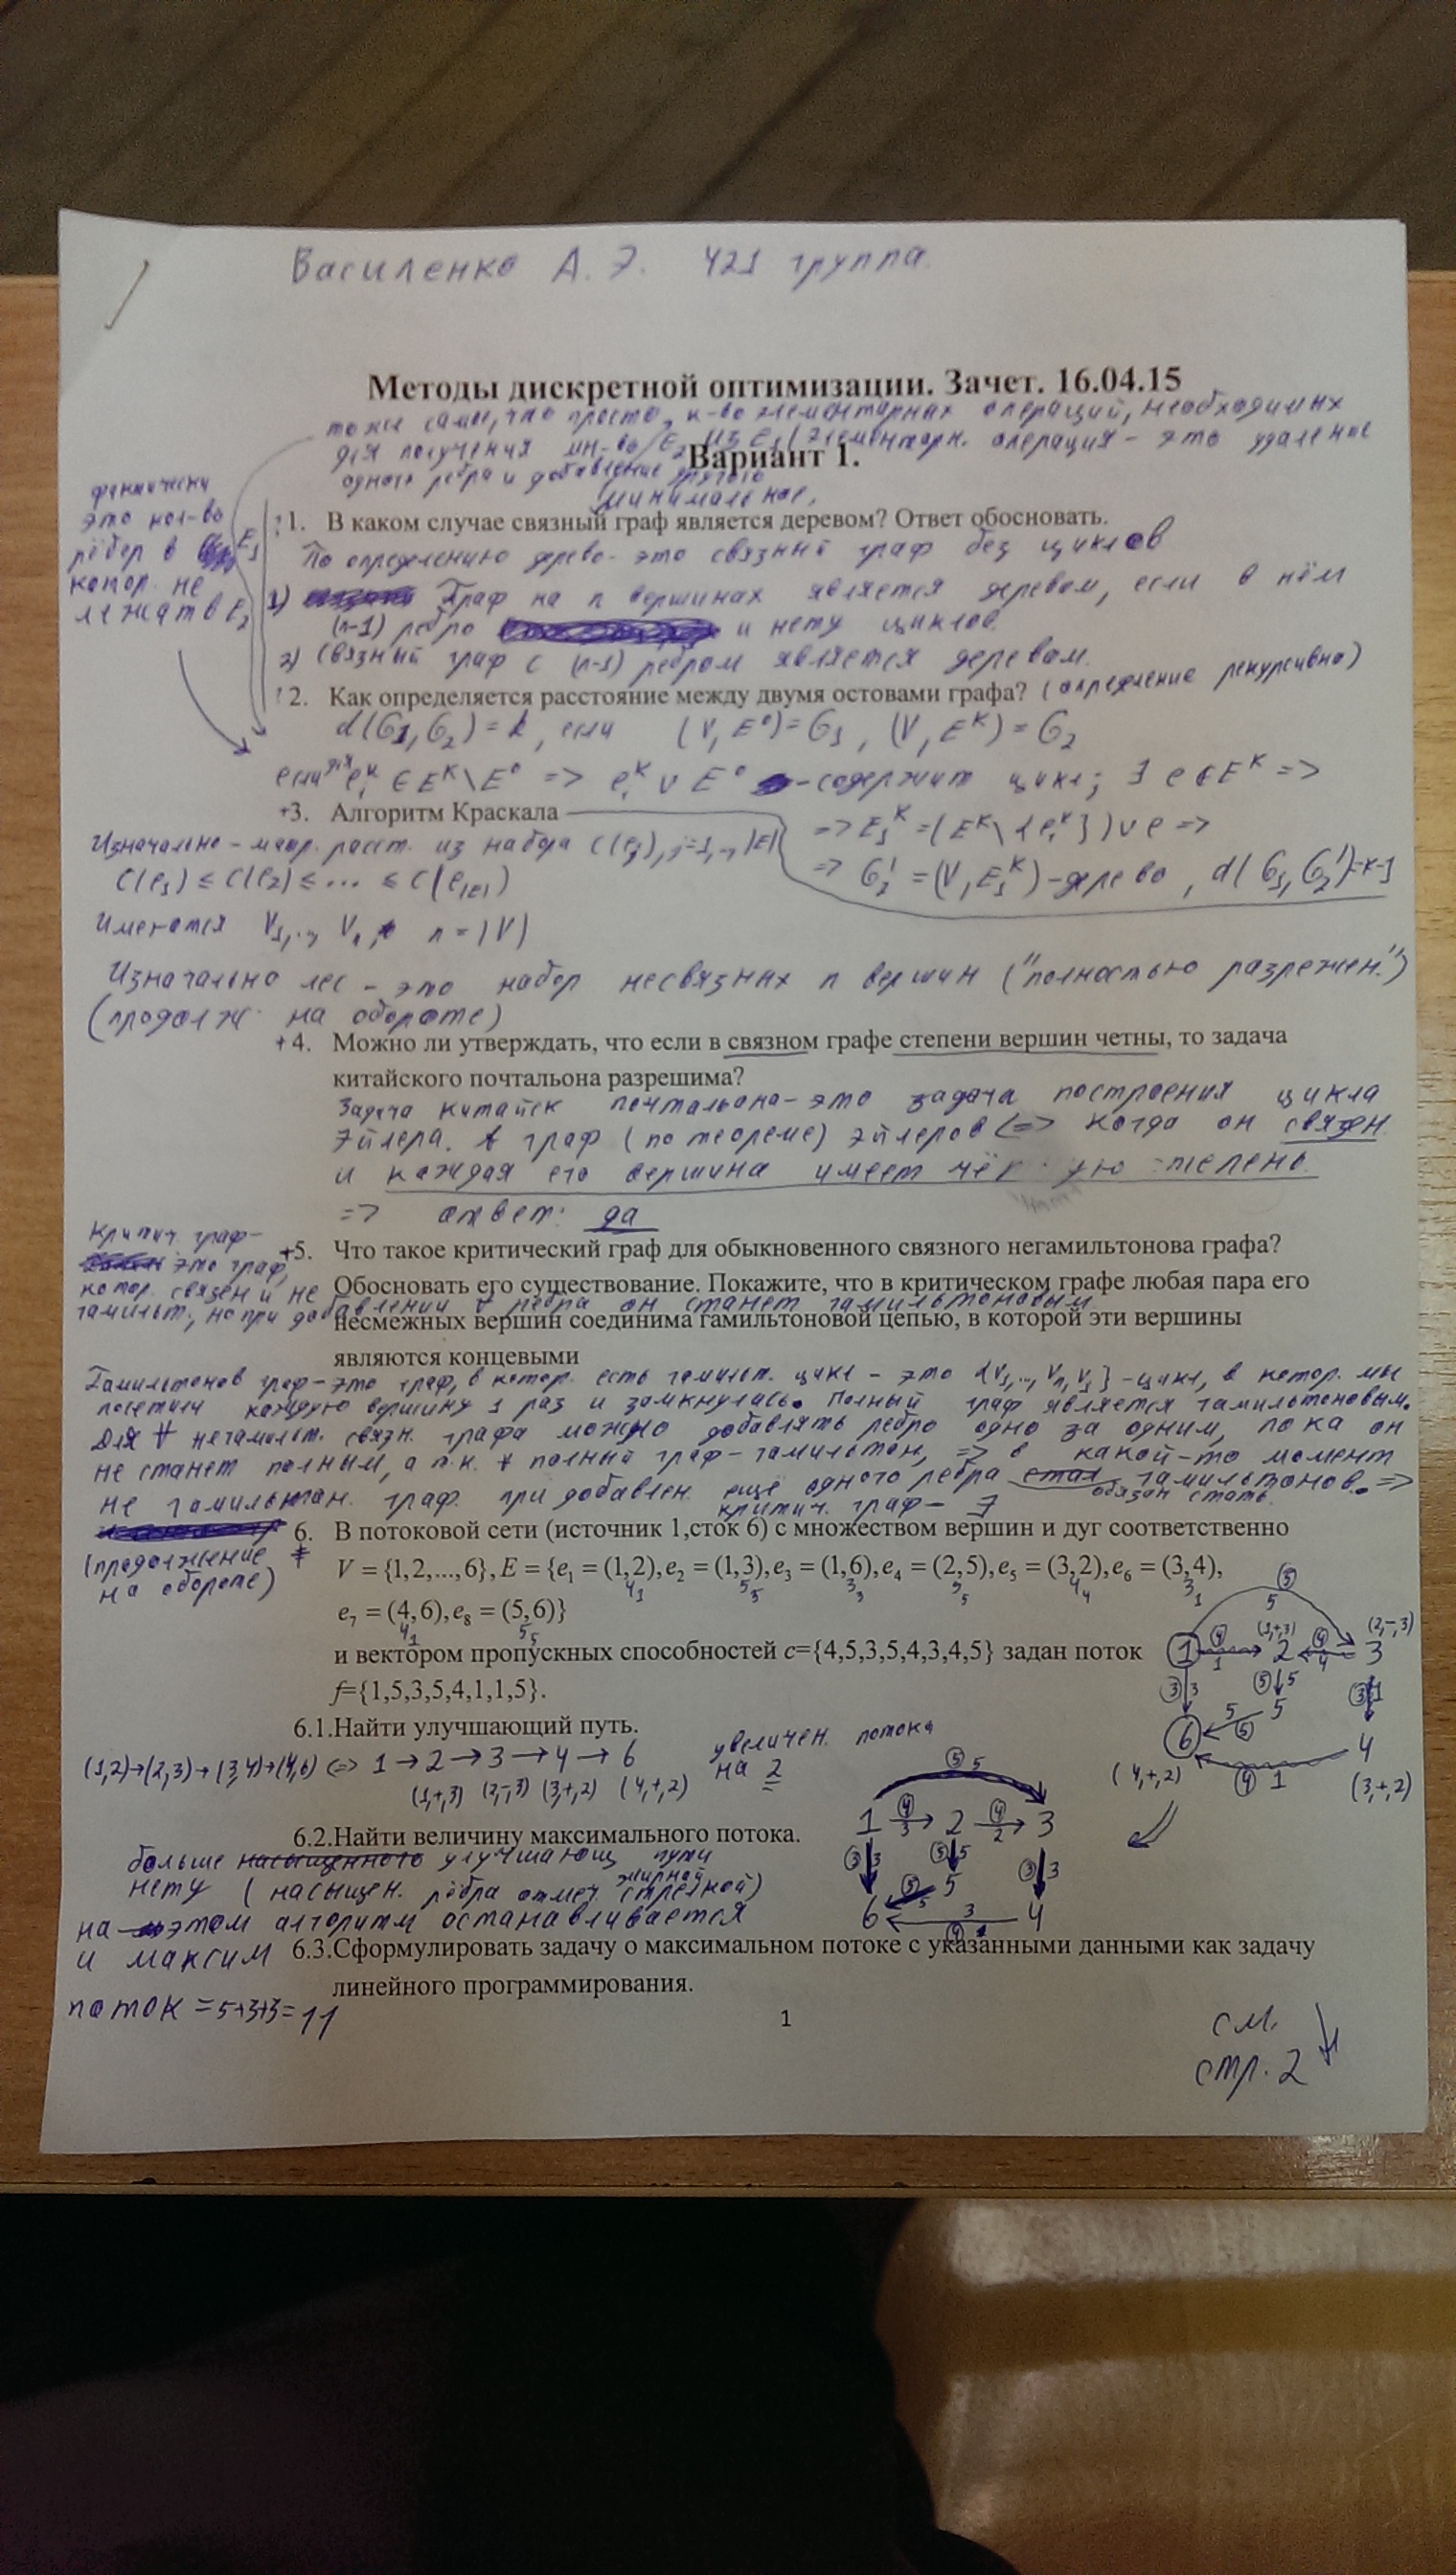 Василенко А. Э. 421 группа.
Методы дискретной оптимизации. Зачет. 16.04.15
то же самое, что просто, к-во элементарных операций, необходимых
для получения мн-во E2 из E1 (элементарн. операция - это удаление
Вариант 1.
одного ребра и добавление другого
минимальное,
фактически
это кол-во
рёбер в E1
котор. не
лежат в E2
1. В каком случае связный граф является деревом? Ответ обосновать.
По определению дерево - это связный граф без циклов
1) Граф на n вершинах является деревом, если в нём
(n-1) ребро и нету циклов.
2) Связный граф с (n-1) ребром является деревом.
2. Как определяется расстояние между двумя остовами графа? (определение рекурсивно)
d(G1, G2) = k, если (V, E⁰) = G1, (V, Eᴷ) = G2
=> содержит цикл; ∃ e ∈ Eᴷ =>
+3. Алгоритм Краскала
=> E1ᴷ = (Eᴷ \ {eᵢᴷ}) ∪ e =>
Изначально - расст. из набора C(ej), j=1,..,|E|
=> G2' = (V, E1ᴷ) - дерево, d(G1, G2') = k-1
C(e1) ≤ C(e2) ≤ ... ≤ C(e|E|)
Имеются V1,.., Vn, n = |V|
Изначально лес - это набор несвязных n вершин ("полностью разрежен.")
(продолж. на обороте)
+4. Можно ли утверждать, что если в связном графе степени вершин четны, то задача
китайского почтальона разрешима?
Задача китайск почтальона - это задача построения цикла
Эйлера. А граф (по теореме) эйлеров <=> когда он связен
и каждая его вершина имеет степень.
=> ответ: да
Критич. граф -
это граф,
+5. Что такое критический граф для обыкновенного связного негамильтонова графа?
котор. связен и не
Обосновать его существование. Покажите, что в критическом графе любая пара его
гамильт., но при добавлении ∀ ребра он станет гамильтоновым.
несмежных вершин соединима гамильтоновой цепью, в которой эти вершины
являются концевыми
Гамильтонов граф - это граф, в котор. есть гамильт. цикл - это {V1,.., Vn, V1} - цикл, в котор. мы
посетили каждую вершину 1 раз и замкнулась. Полный граф является гамильтоновым.
Для ∀ негамильт. связн. графа можно добавлять ребро одно за одним, пока он
не станет полным, а т.к. ∀ полный граф - гамильтон, => в какой-то момент
не гамильтон. граф при добавлен. ещё одного ребра стал гамильтонов. =>
обязан стать.
критич. граф - ∃
(продолжение
на обороте)
6. В потоковой сети (источник 1,сток 6) с множеством вершин и дуг соответственно
V = {1,2,...,6}, E = {e1 = (1,2), e2 = (1,3), e3 = (1,6), e4 = (2,5), e5 = (3,2), e6 = (3,4),
41 55 33 55 44 31
e7 = (4,6), e8 = (5,6)}
41 55
и вектором пропускных способностей c={4,5,3,5,4,3,4,5} задан поток
f={1,5,3,5,4,1,1,5}.
5 5
(1,+,3) (2,-,3)
1 4 1 2 4 4 3
3 3 5 5 3 1
6 5 5 5
4
(4,+,2) 4 1 (3,+,2)
6.1.Найти улучшающий путь.
(1,2)→(2,3)→(3,4)→(4,6) <=> 1 → 2 → 3 → 4 → 6
(1,+,3) (2,-,3) (3,+,2) (4,+,2)
увеличен. потока
на 2
5 5
1 4 3 2 4 2 3
3 3 5 5 3 3
6 5 5 5
3 4
4
6.2.Найти величину максимального потока.
больше насыщенного улучшающ пути
нету (насыщен. рёбра отмеч. жирной стрелкой)
на этом алгоритм останавливается
и максим
поток = 5+3+3 = 11
6.3.Сформулировать задачу о максимальном потоке с указанными данными как задачу
линейного программирования.
1
см.
стр. 2